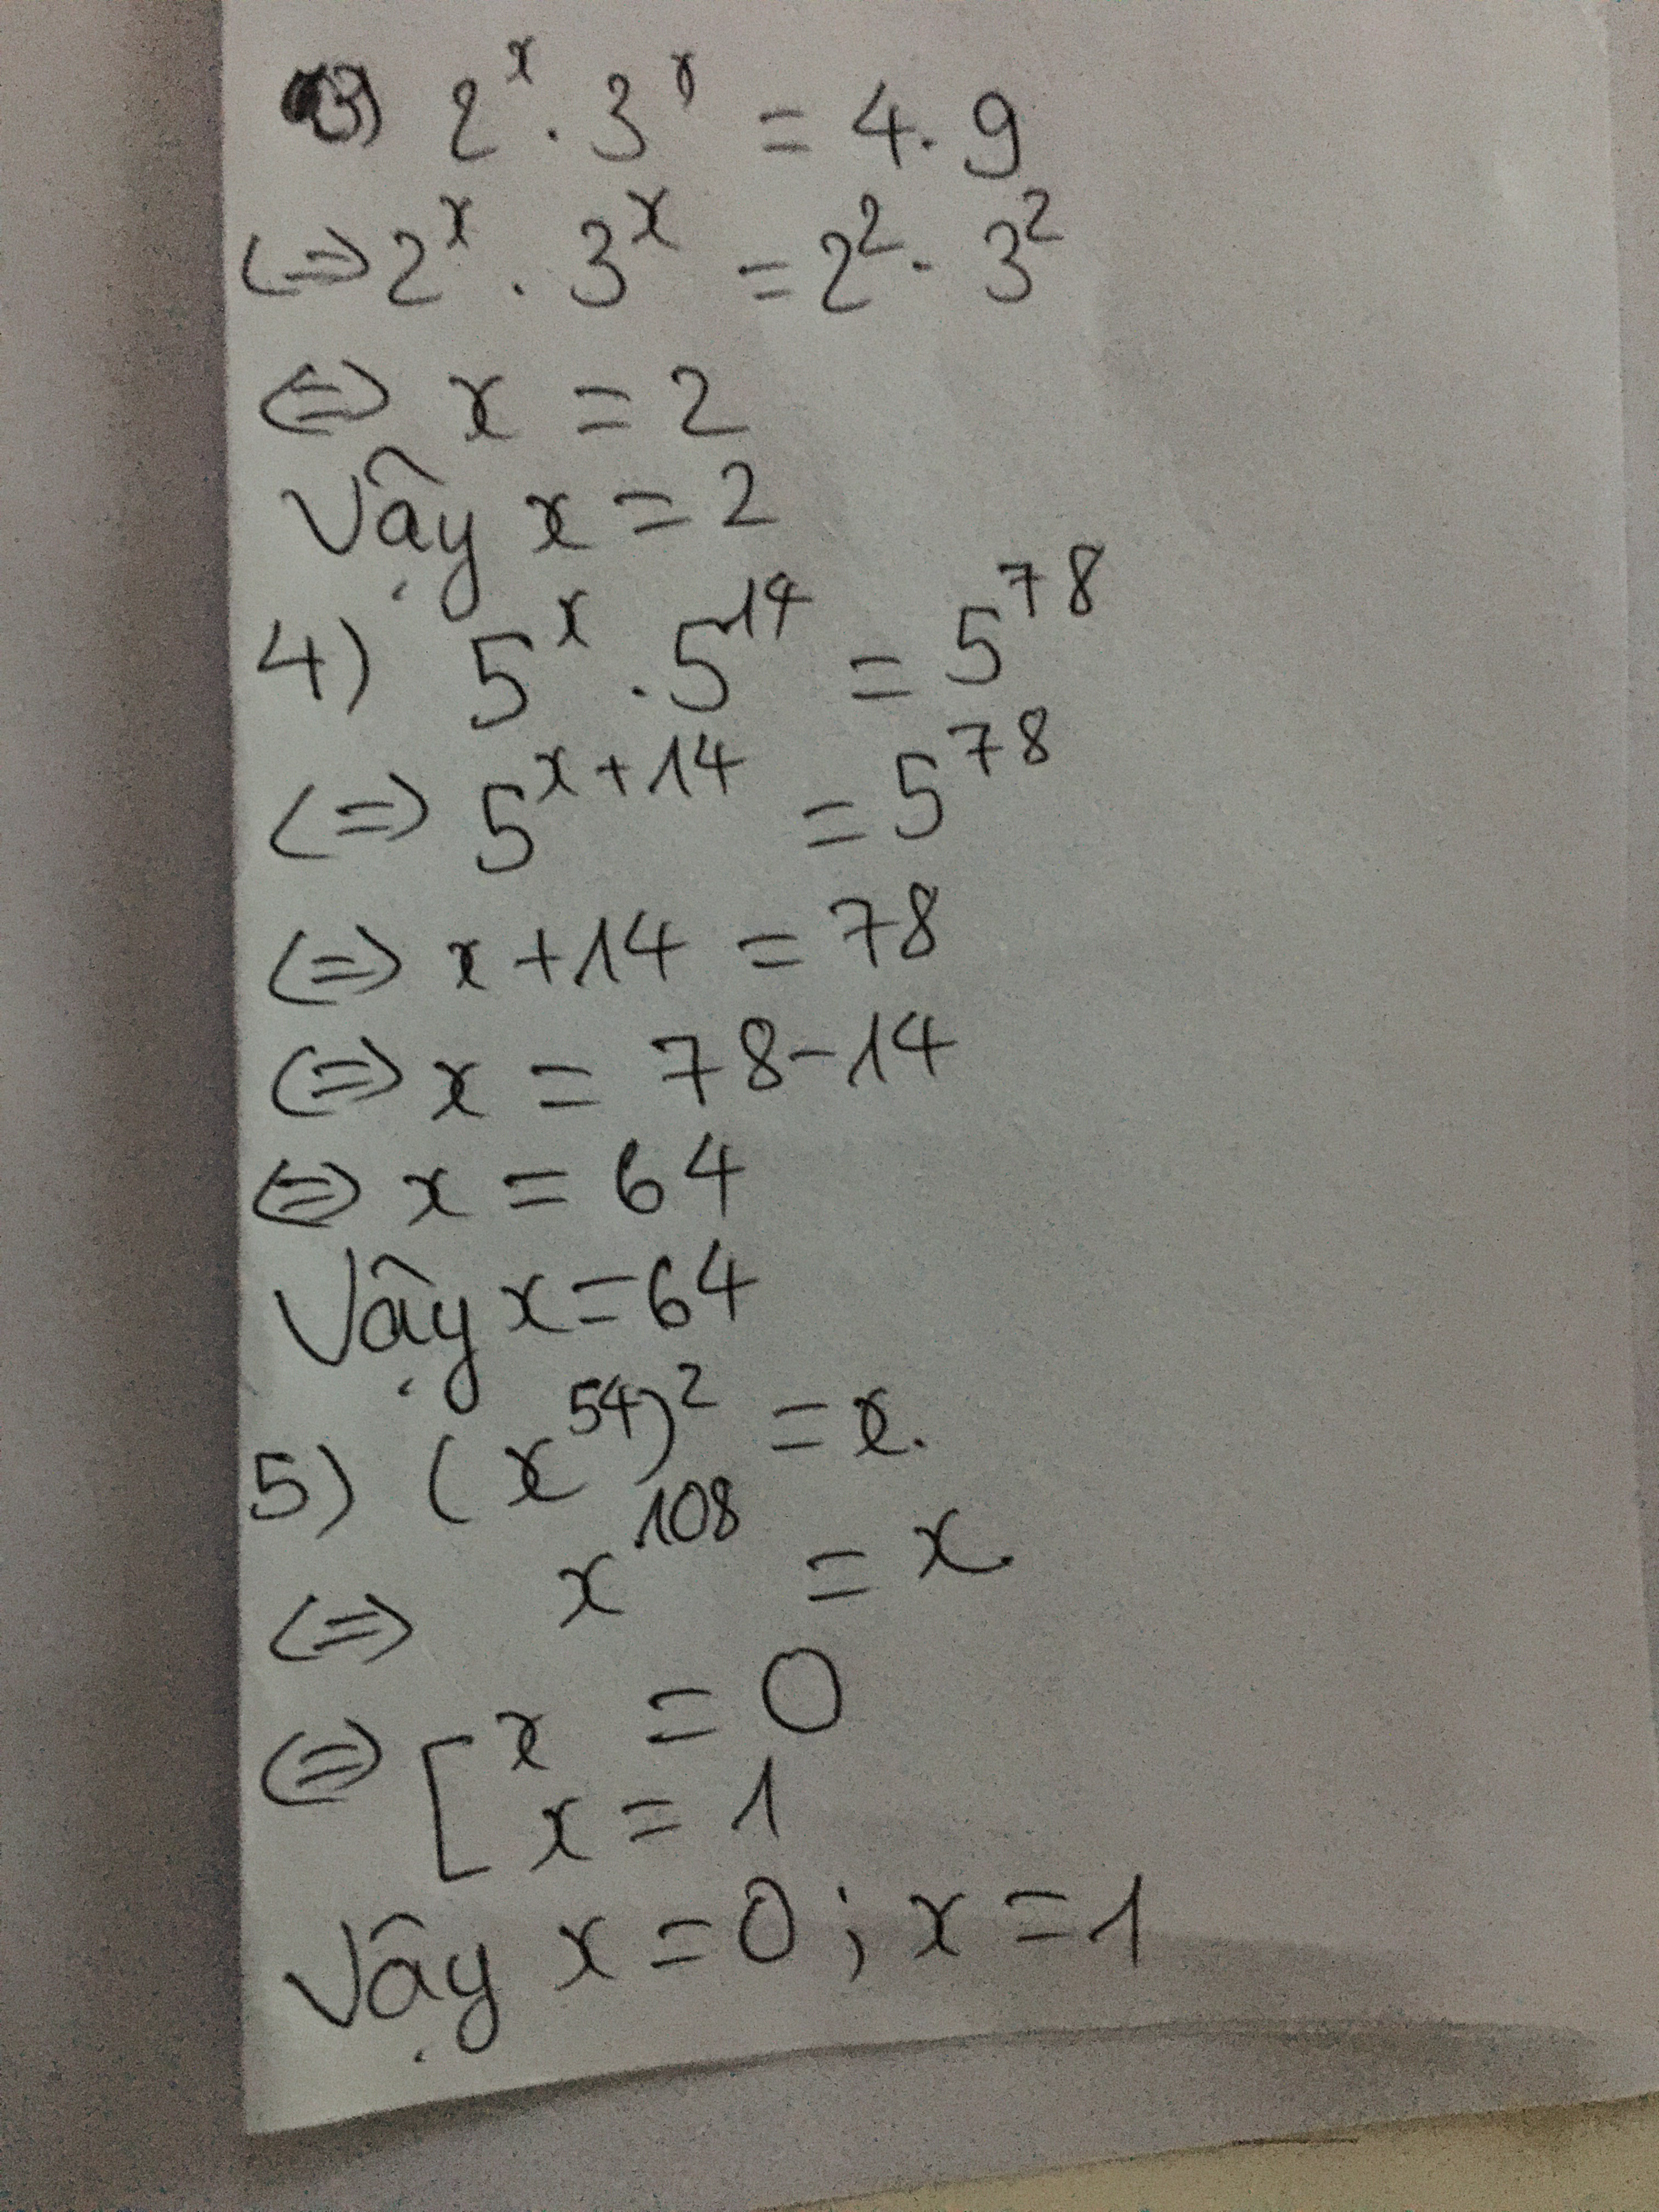 3) 2^x . 3^x = 4. 9
<=> 2^x . 3^x = 2^2 . 3^2
<=> x = 2
Vậy x = 2
4) 5^x . 5^14 = 5^78
<=> 5^x+14 = 5^78
<=> x +14 = 78
<=> x = 78-14
<=> x = 64
Vậy x=64
5) (x^54)^2 = x.
<=> x^108 = x
<=> [ x = 0
x = 1
Vậy x = 0 ; x = 1